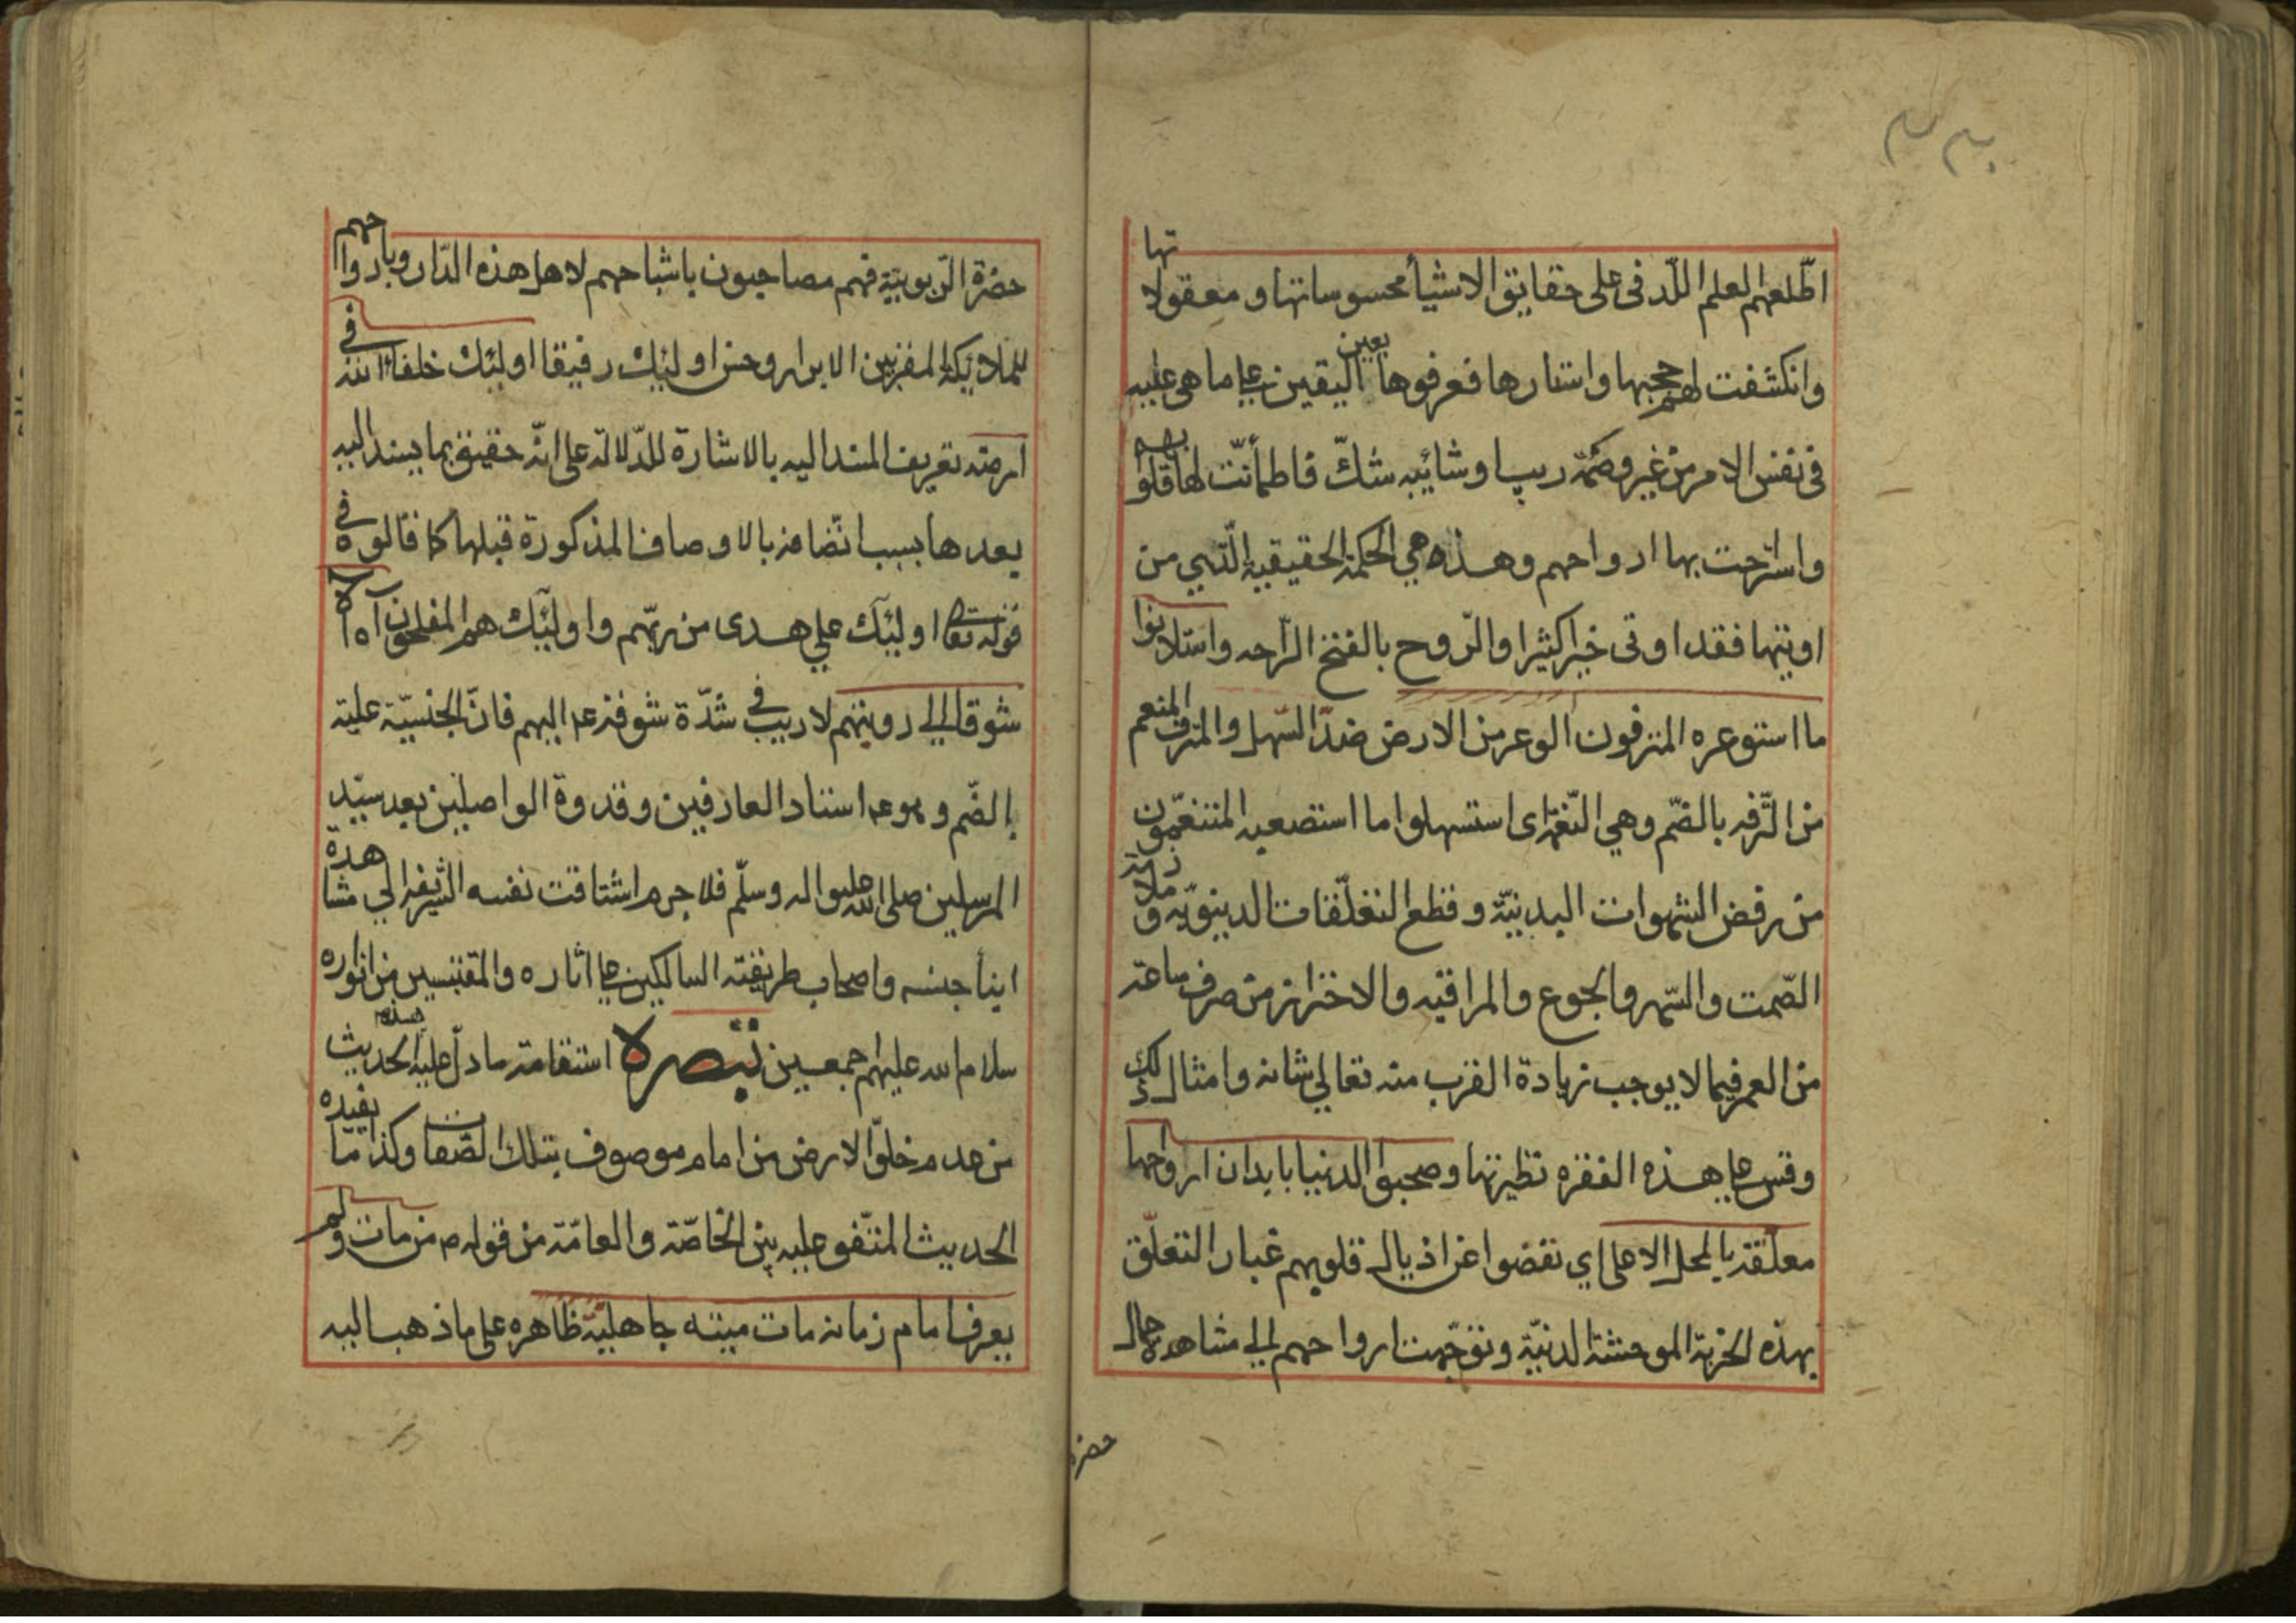 اطّلعهم العلم اللّدفى على حقايق الاشيأ محسوساتها و معقولاتها
وانكشفت لهم حجبها واستارها فعرفوها بعين اليقين على ما هى عليه
فى نفس الامر من غير وصمة ريب وشائيبه شكّ فاطمأنّت لها قلوبهم
واسترحت بها ارواحهم وهذه هي الحكمة الحقيقيه الّتي من
اوتيها فقد اوتى خيراكثيرا والرّوح بالفتح الرّاحه واستلانوا
ما استوعره المترفون الوعر من الارض ضدّ السّهل والمترف المنعم
من التّرفه بالضّم وهي النّعمة اى استسهلوا ما استصعبه المتنعّمون
من رفض الشهوات البدنيّة وقطع التعلّقات الدينوّيه وملازمة
الصّمت والسّهر والجوع والمراقبه والاحتراز من صرف ساعته
من العمر فيما لا يوجب زيادة القرب منه تعالي شانه وامثال ذلك
وقس على هذه الفقره نظيرتها وصحبوا الدنيا بابدان ارواحها
معلّقة بالمحل الاعلى اي نفضوا عن اذيال قلوبهم غبار التعلّق
بهذه الخربة الموحشة الدنيّة وتوجّهت ارواحهم الي مشاهدة جمال
حضرة
حضرة الرّبوبيّة فهم مصاحبون باشباحهم لاهل هذه الدّار وبارواحهم
للملائيكة المقرّبين الابرار وحسن اولئيك رفيقا اولئيك خلفاء الله في
ارضه تعريف المسند اليه بالاشارة للدّلالة على انّه حقيق بما يسند اليه
بعدها بسبب اتّصافه بالاوصاف المذكورة قبلها كما قالوه في
قوله تعالى اولئيك علي هدى من ربّهم واولئيك هم المفلحون آه آه
شوقا الي رويتهم لا ريب في شدّة شوقه ع اليهم فانّ الجنسيّة علية
الضّم وهو ع استاد العارفين وقدوة الواصلين بعد سيّد
المرسلين صلى الله عليه واله وسلّم فلا جرم اشتاقت نفسه الشّريفه الي مشاهدة
ابنأ جنسه واصحاب طريقته السالكين على اثاره والمقتبسين من انواره
سلام الله عليهم اجمعين تبصره استقامة ما دلّ عليه هذا الحديث
من عدم خلوّ الارض من امام موصوف بتلك الصّفات وكذا ما يفيده
الحديث المتّفق عليه بين الخاصّة والعامّة من قوله ص من مات ولم
يعرف امام زمانه مات ميتة جاهليّة ظاهره على ما ذهب اليه